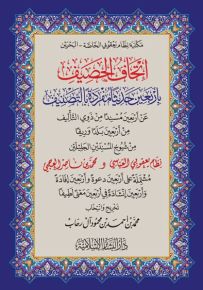 مكتبة نظام يعقوبي الخاصة - البحرين
إتحاف الحصيف
بأربعين حديثا مفردة بالتصنيف
عن أربعين مسندا من ذوي التأليف
من أربعين بلدا وريفا
من شيوخ المسندين الجليلين
نظام يعقوبي العباسي و محمد بن ناصر العجمي
مشتملة على أربعين دعوة وأربعين إفادة
وأربعين إنشادة في أربعين معنى لطيفا
تخريج وانتخاب
محمد بن أحمد بن محمود آل رحاب
دار البشائر الإسلامية